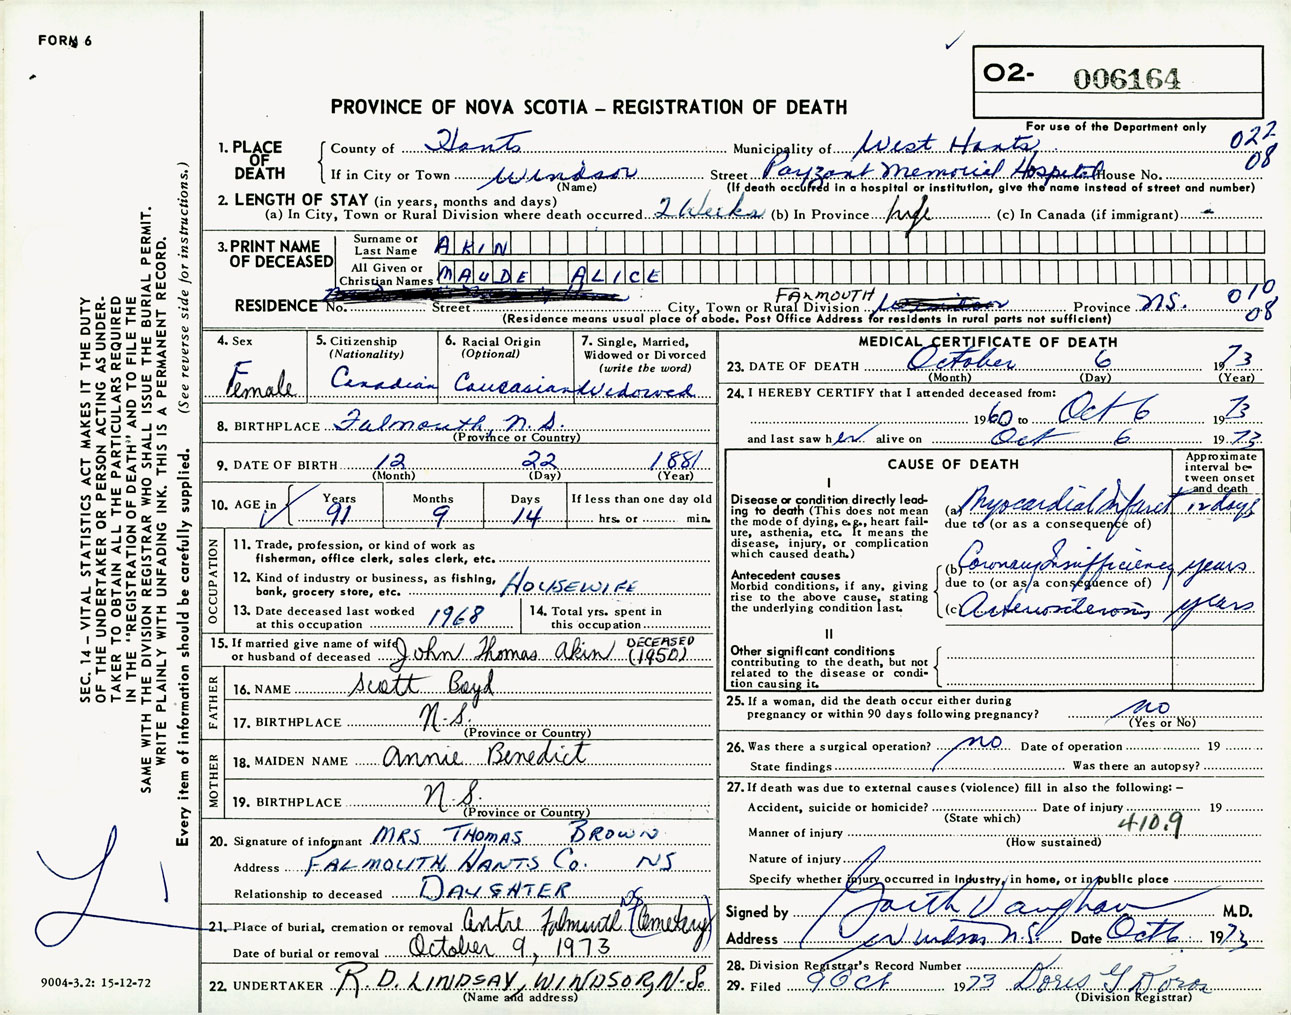 FORM 6
02- 006164
PROVINCE OF NOVA SCOTIA – REGISTRATION OF DEATH
For use of the Department only
1. PLACE OF DEATH
County of Hants Municipality of West Hants 022
If in City or Town Windsor Street Payzant Memorial Hospital House No. 08
(Name) (If death occurred in a hospital or institution, give the name instead of street and number)
2. LENGTH OF STAY (in years, months and days)
(a) In City, Town or Rural Division where death occurred 2 Weeks (b) In Province life (c) In Canada (if immigrant) -
3. PRINT NAME OF DECEASED
Surname or Last Name AKIN
All Given or Christian Names MAUDE ALICE
RESIDENCE No. Street City, Town or Rural Division FALMOUTH Province N.S. 010 08
(Residence means usual place of abode. Post Office Address for residents in rural parts not sufficient)
4. Sex
Female
5. Citizenship
(Nationality)
Canadian
6. Racial Origin
(Optional)
Caucasian
7. Single, Married, Widowed or Divorced
(write the word)
Widowed
8. BIRTHPLACE Falmouth, N.S.
(Province or Country)
9. DATE OF BIRTH 12 22 1881
(Month) (Day) (Year)
10. AGE in Years Months Days If less than one day old
91 9 14 hrs. or min.
OCCUPATION
11. Trade, profession, or kind of work as
fisherman, office clerk, sales clerk, etc.
12. Kind of industry or business, as fishing,
bank, grocery store, etc. HOUSEWIFE
13. Date deceased last worked
at this occupation 1968
14. Total yrs. spent in
this occupation
15. If married give name of wife
or husband of deceased John Thomas Akin DECEASED (1950)
FATHER
16. NAME Scott Boyd
17. BIRTHPLACE N.S.
(Province or Country)
MOTHER
18. MAIDEN NAME Annie Benedict
19. BIRTHPLACE N.S.
(Province or Country)
20. Signature of informant MRS THOMAS BROWN
Address FALMOUTH, HANTS Co. NS
Relationship to deceased DAUGHTER
21. Place of burial, cremation or removal Centre Falmouth NS (Cemetery)
Date of burial or removal October 9, 1973
22. UNDERTAKER R.D. LINDSAY, WINDSOR, N.S.
(Name and address)
MEDICAL CERTIFICATE OF DEATH
23. DATE OF DEATH October 6 1973
(Month) (Day) (Year)
24. I HEREBY CERTIFY that I attended deceased from:
1960 to Oct 6 1973
and last saw her alive on Oct 6 1973
CAUSE OF DEATH
Approximate interval between onset and death
I
Disease or condition directly lead-
ing to death (This does not mean
the mode of dying, e.g., heart fail-
ure, asthenia, etc. It means the
disease, injury, or complication
which caused death.)
(a) Myocardial Infarct 12 days
due to (or as a consequence of)
Antecedent causes
Morbid conditions, if any, giving
rise to the above cause, stating
the underlying condition last.
(b) Coronary Insufficiency years
due to (or as a consequence of)
(c) Arteriosclerosis years
II
Other significant conditions
contributing to the death, but not
related to the disease or condi-
tion causing it.
25. If a woman, did the death occur either during
pregnancy or within 90 days following pregnancy? no
(Yes or No)
26. Was there a surgical operation? no Date of operation 19
State findings Was there an autopsy?
27. If death was due to external causes (violence) fill in also the following: –
Accident, suicide or homicide? Date of injury 19
(State which) 410.9
Manner of injury
(How sustained)
Nature of injury
Specify whether injury occurred in Industry, in home, or in public place
Signed by Garth Vaughan M.D.
Address Windsor N.S. Date Oct 6 1973
28. Division Registrar's Record Number
29. Filed 9 Oct 1973 Doris G
(Division Registrar)
SEC. 14 – VITAL STATISTICS ACT MAKES IT THE DUTY
OF THE UNDERTAKER OR PERSON ACTING AS UNDER-
TAKER TO OBTAIN ALL THE PARTICULARS REQUIRED
IN THE "REGISTRATION OF DEATH" AND TO FILE THE
SAME WITH THE DIVISION REGISTRAR WHO SHALL ISSUE THE BURIAL PERMIT.
WRITE PLAINLY WITH UNFADING INK. THIS IS A PERMANENT RECORD.
Every item of information should be carefully supplied. (See reverse side for instructions.)
9004-3.2: 15-12-72